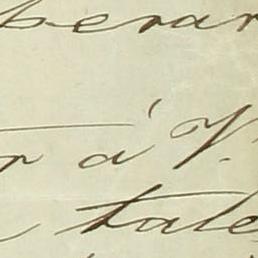 perar
r á V.
tale